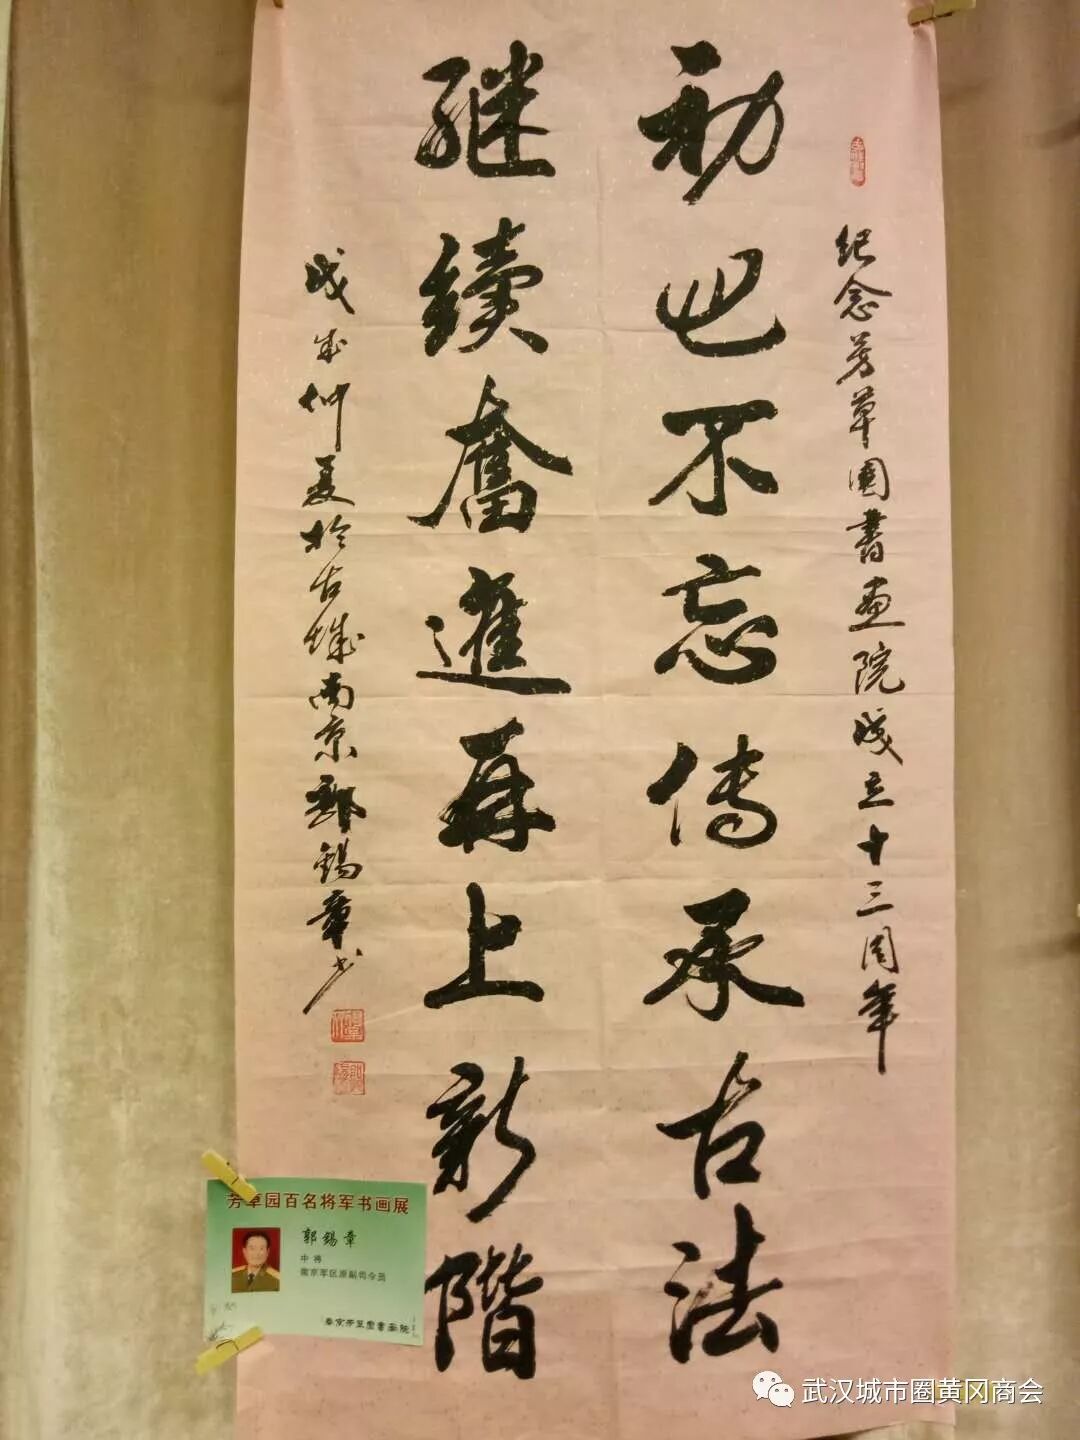 紀念芳草園書畫院成立十三周年
初心不忘傳承古法
继續奮進再上新階
戊戌仲夏於古城南京郭錫章书
芳草园百名将军书画展
郭锡章
中将
南京军区原副司令员
南京芳草園書画院
武汉城市圈黄冈商会